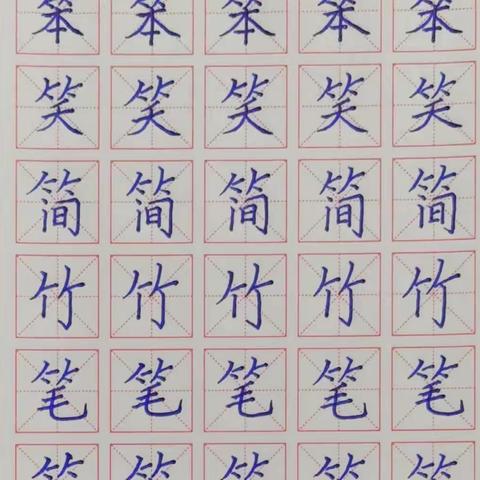 笨笨笨笨笨
笑笑笑笑笑
简简简简简
竹竹竹竹竹
笔笔笔笔笔